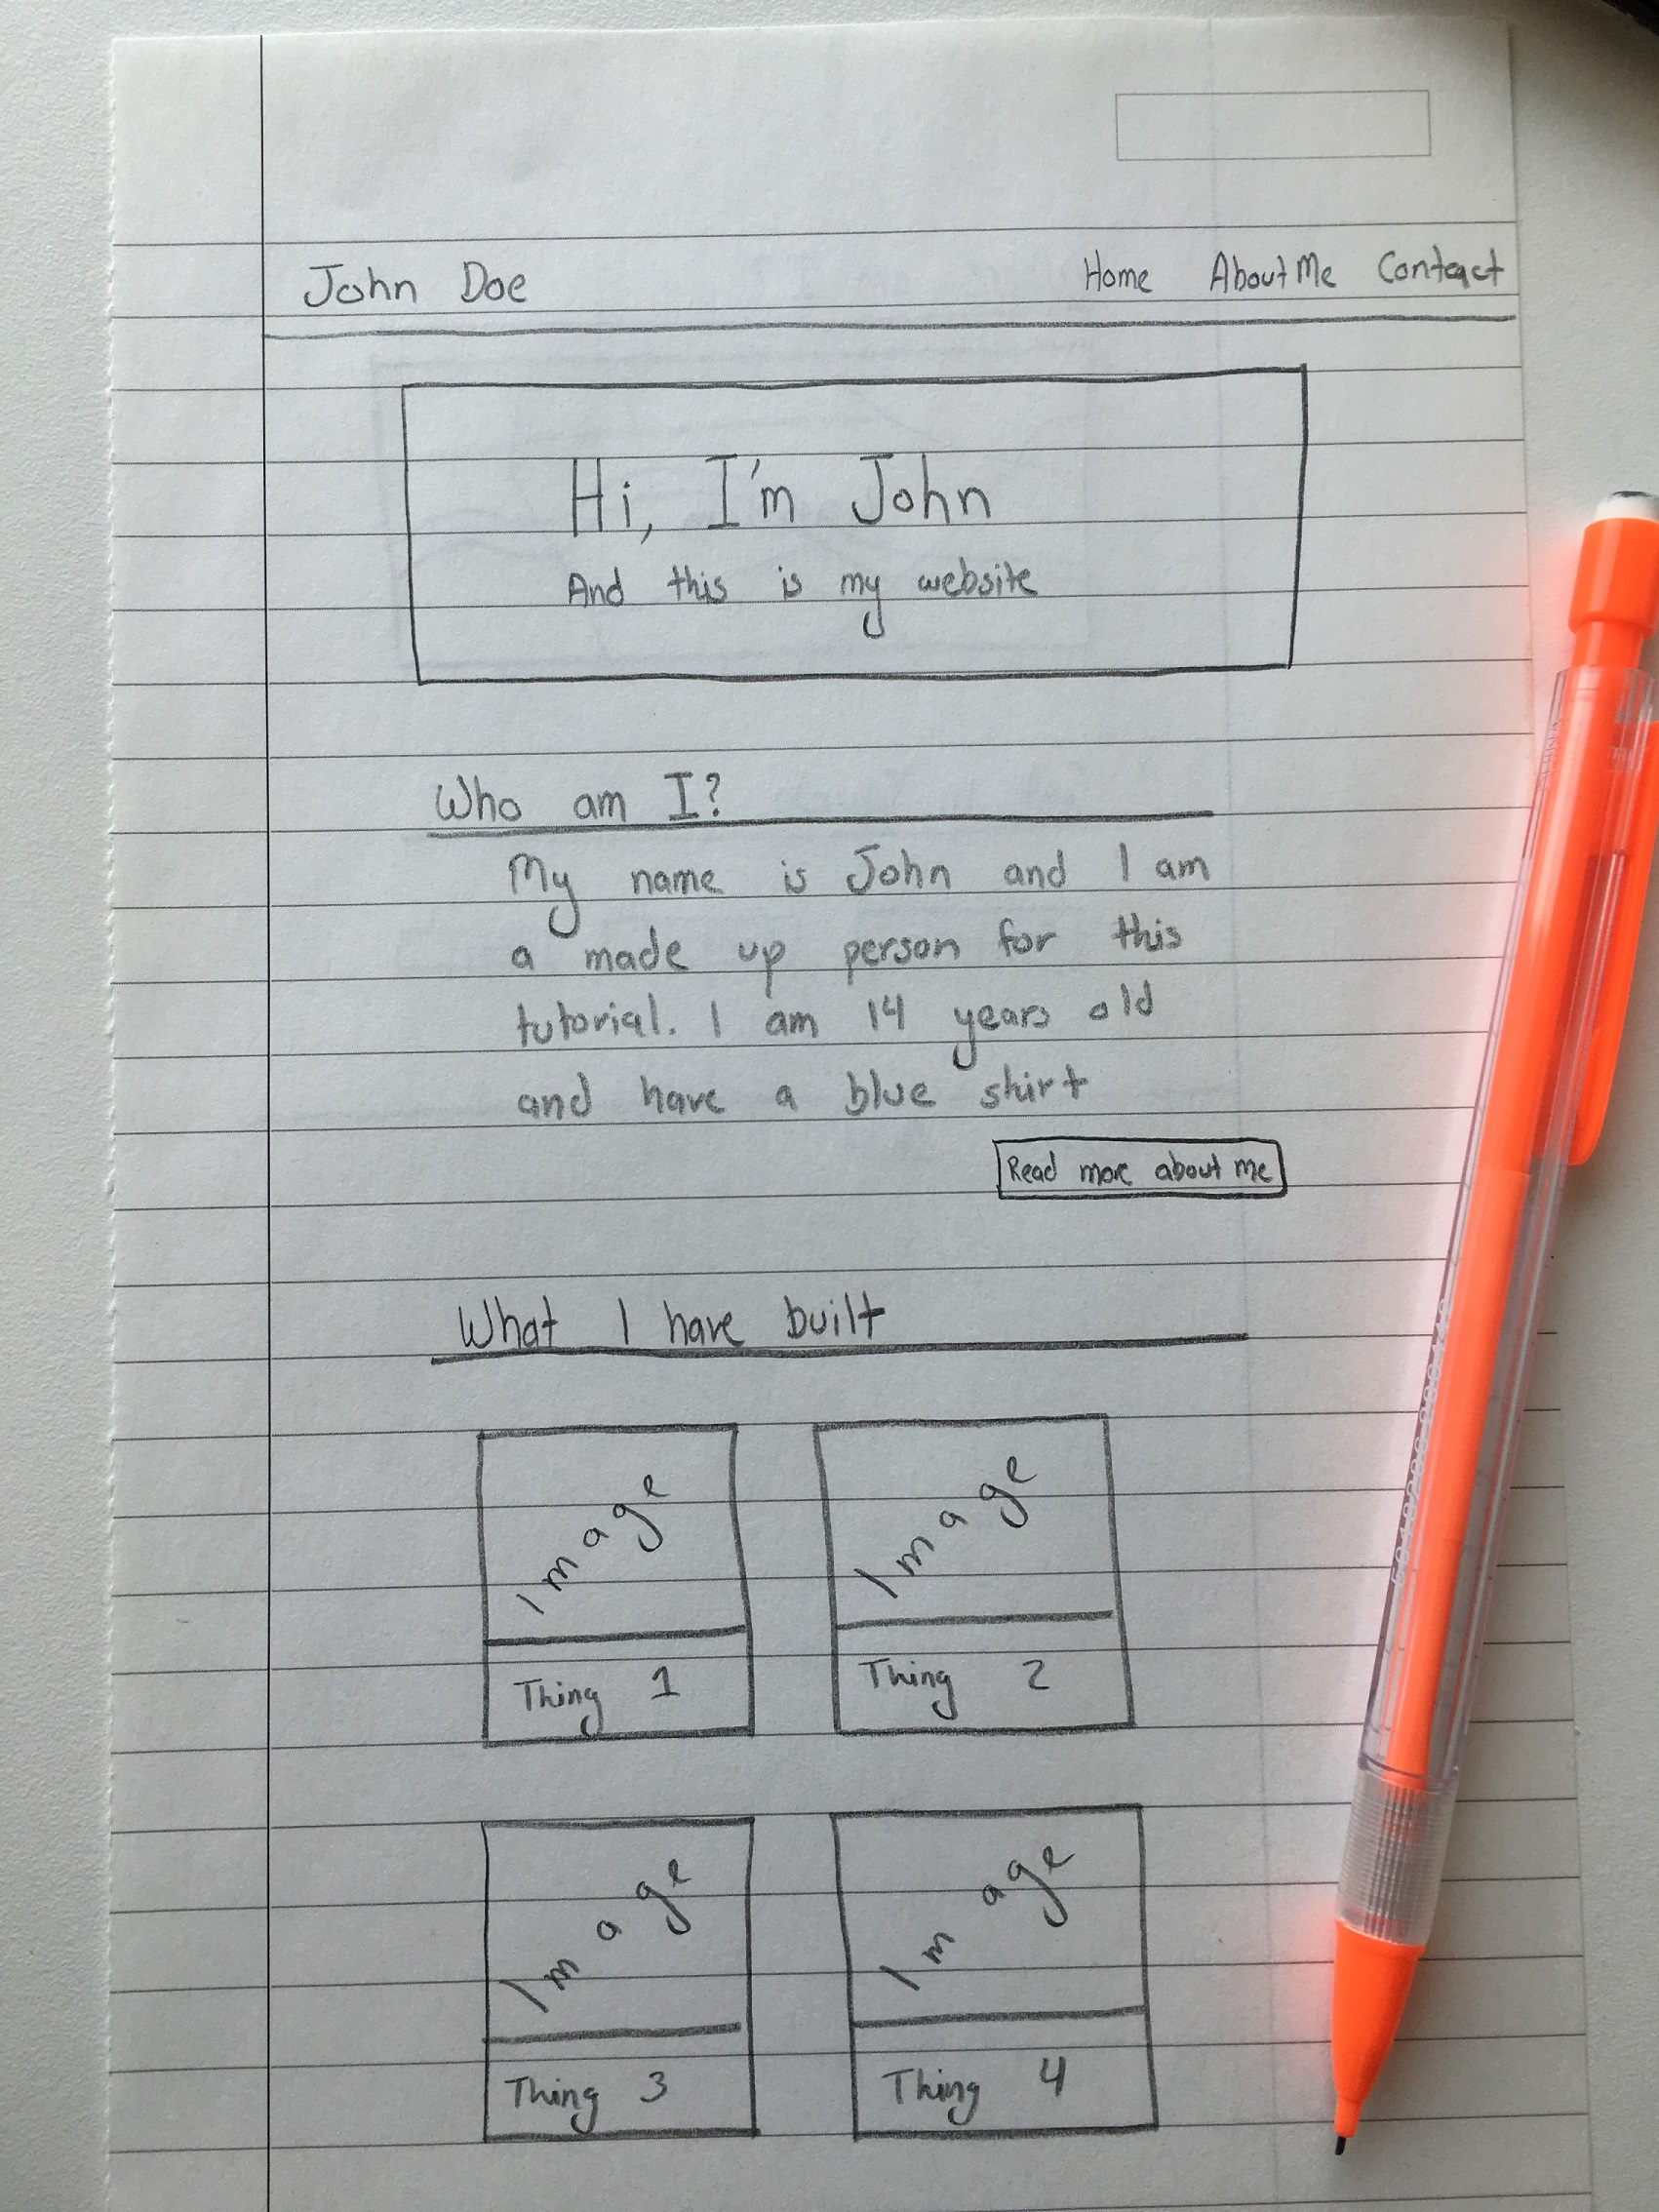 John Doe
Home About Me Contact
Hi, I'm John
And this is my website
Who am I?
My name is John and I am
a made up person for this
tutorial. I am 14 years old
and have a blue shirt
Read more about me
What I have built
Image
Image
Thing 1
Thing 2
Image
Image
Thing 3
Thing 4